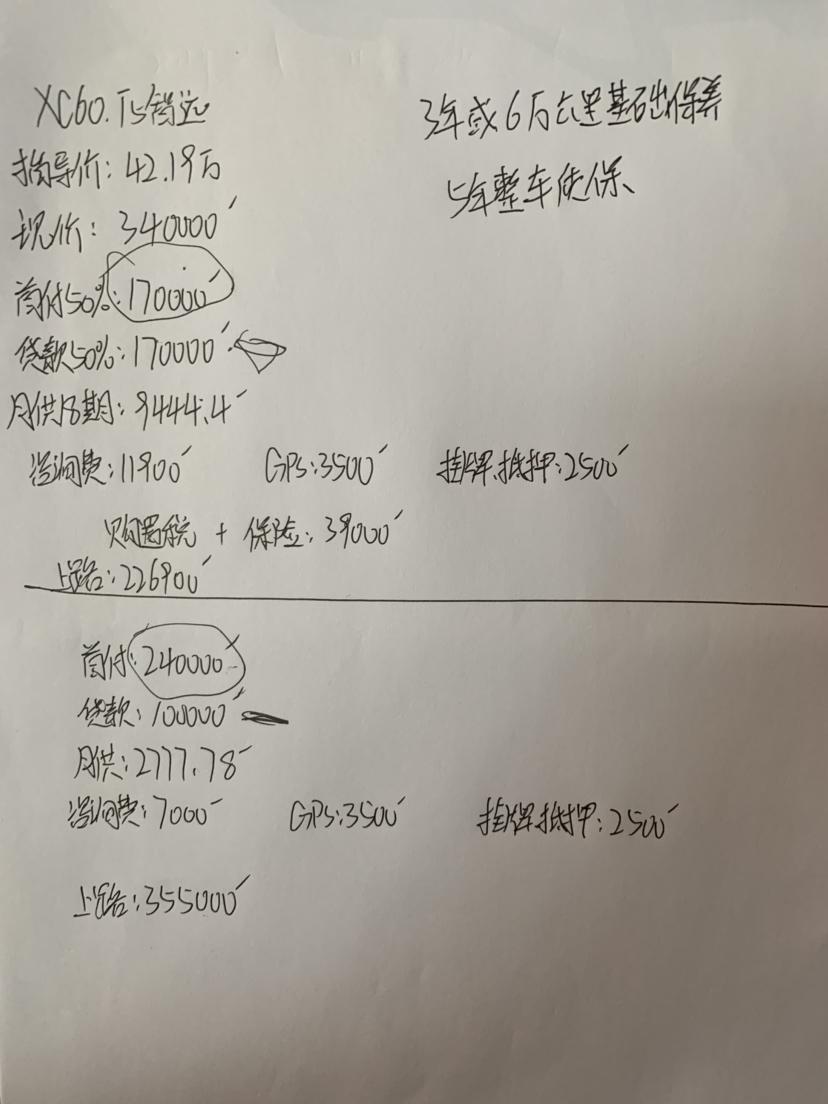 XC60.T5智远
3年或6万公里基础保养
指导价:42.19万
5年整车质保、
现价:340000
首付50%:170000
贷款50%:170000
月供18期:9444.4
咨询费:11900 GPS:3500 挂牌、抵押:2500
购置税 + 保险:39000
上路:226900
首付:240000
贷款:100000
月供:2777.78
咨询费:7000 GPS:3500 挂牌抵押:2500
上路:355000